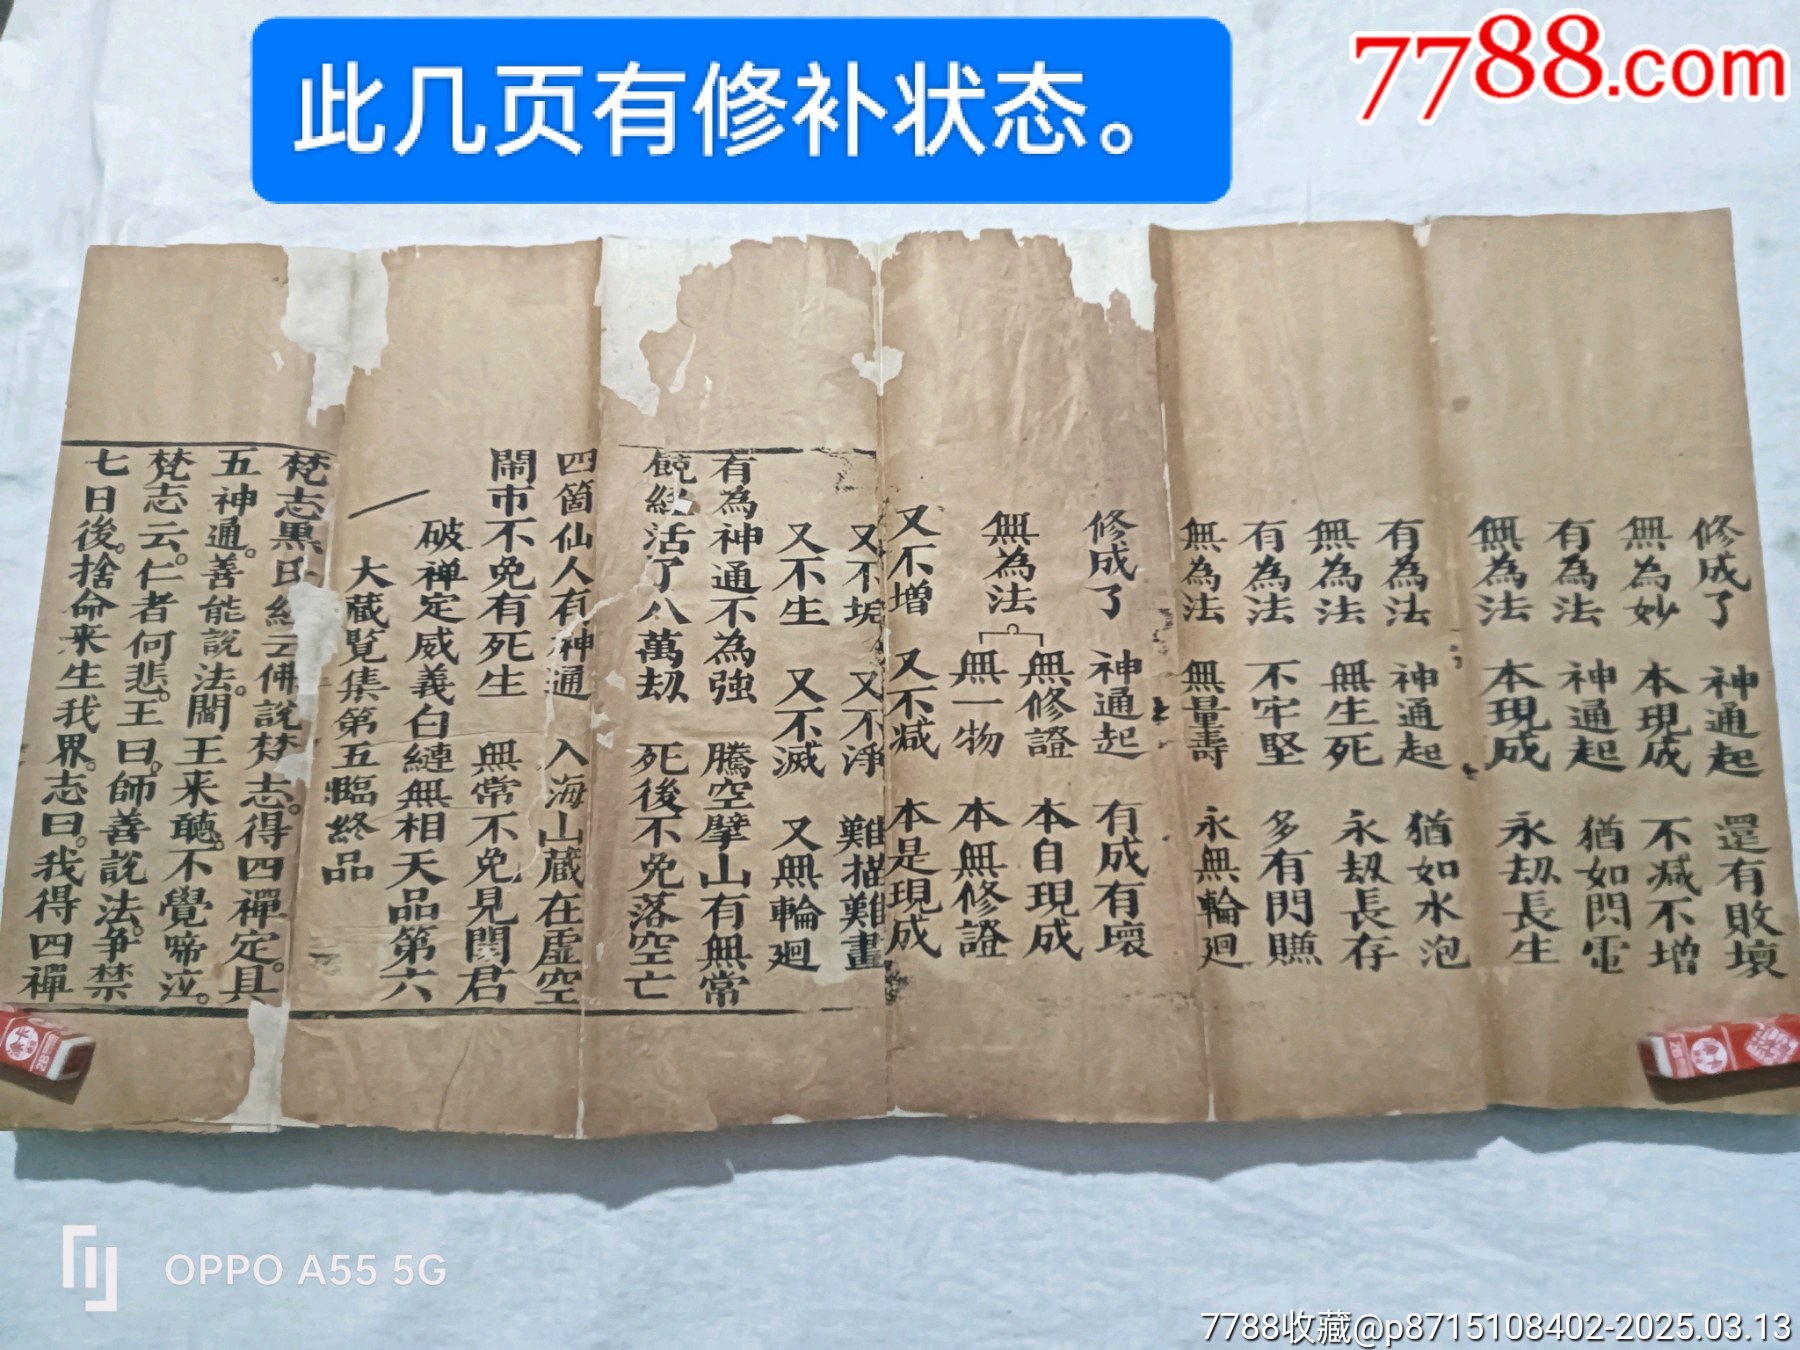 此几页有修补状态。
7788.com
修成了 神通起 還有敗壞
無為妙 本現成 不减不增
有為法 神通起 猶如閃電
無為法 本現成 永刼長生
有為法 神通起 猶如水泡
無為法 無生死 永刼長存
有為法 不牢堅 多有閃賺
無為法 無量壽 永無輪廻
修成了 神通起 有成有壞
無修證 本自現成
無為法
無一物 本無修證
又不增 又不减 本是現成
又不垢 又不淨 難描難畫
又不生 又不滅 又無輪廻
有為神通不為強 騰空擘山有無常
饒經活了八萬刼 死後不免落空亡
四箇仙人有神通 入海山藏在虛空
鬧市不免有死生 無常不免見閻君
破禅定威義白縺無相天品第六
大藏覧集第五臨終品
梵志黑氏經云佛說梵志。得四禪定。具
五神通。善能說法。閻王来聽。不覺啼泣。
梵志云。仁者何悲。王曰。師善說法。争禁
七日後。捨命来生我界。志曰。我得四禪
OPPO A55 5G
7788收藏@p8715108402-2025.03.13